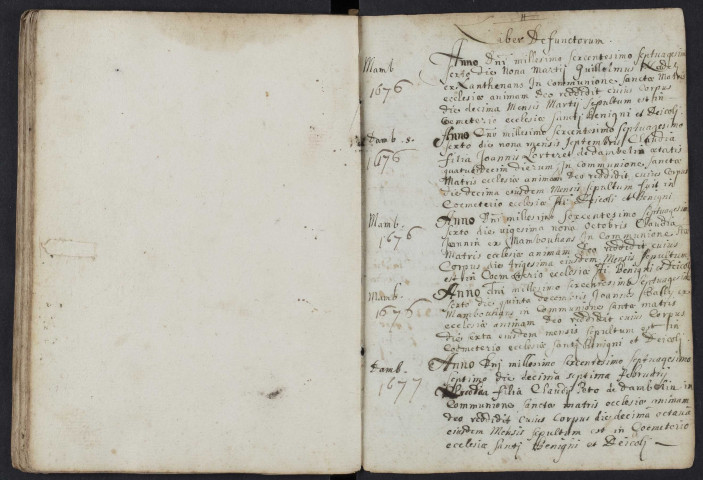 Liber defunctorum
Mamb
1676
Anno Dni millesimo sexcentesimo septuagesimo
sexto die nona Martij Guillelmus
ex Xanthenans In communione sanctæ Matris
ecclesiæ animam deo reddidit cuius corpus
die decima Mensis Martij sepultum est in
Cemeterio ecclesiæ santi Benigni et Deicoli
damb. s.
1676
Anno Dni millesimo sexcentesimo septuagesimo
sexto die nona mensis septembris Claudia
filia Joannis de dambelin ætatis
quatuordecim dierum In communione sanctæ
Matris ecclesiæ animam deo reddidit, cuius corpus
die decima eiusdem Mensis sepultum fuit in
Coemeterio ecclesiæ Sti Deicoli et Benigni
Mamb.
1676
Anno Dni millesimo sexcentesimo septuagesimo
sexto die vigesima nona Octobris Claudia
ex Mambouhans In communione
Matris ecclesiæ animam deo reddidit cuius
Corpus die trigesima eiusdem Mensis sepultum
est in Coemeterio ecclesiæ Sti Benigni et Deicoli
Mamb.
1676
Anno Dni millesimo sexcentesimo septuagesimo
sexto die quinta decembris Joannes ex
Mambouhans in communione santæ matris
ecclesiæ animam deo reddidit cuius Corpus
die sexta eiusdem mensis sepultum est in
Coemeterio ecclesiæ santi Benigni et Deicoli
damb.
1677
Anno Dni millesimo sexcentesimo septuagesimo
septimo die decima septima februarij
filia Claudij de dambelin in
Communione sanctæ matris ecclesiæ animam
deo reddidit cuius Corpus die decima octava
eiusdem Mensis sepultum est in Coemeterio
ecclesiæ santi Benigni et Deicoli